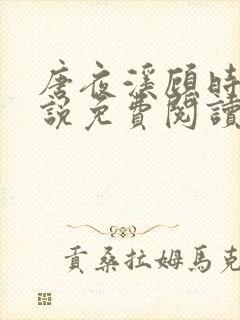 唐夜溪顧時
說免費閱讀
貢桑拉姆馬克